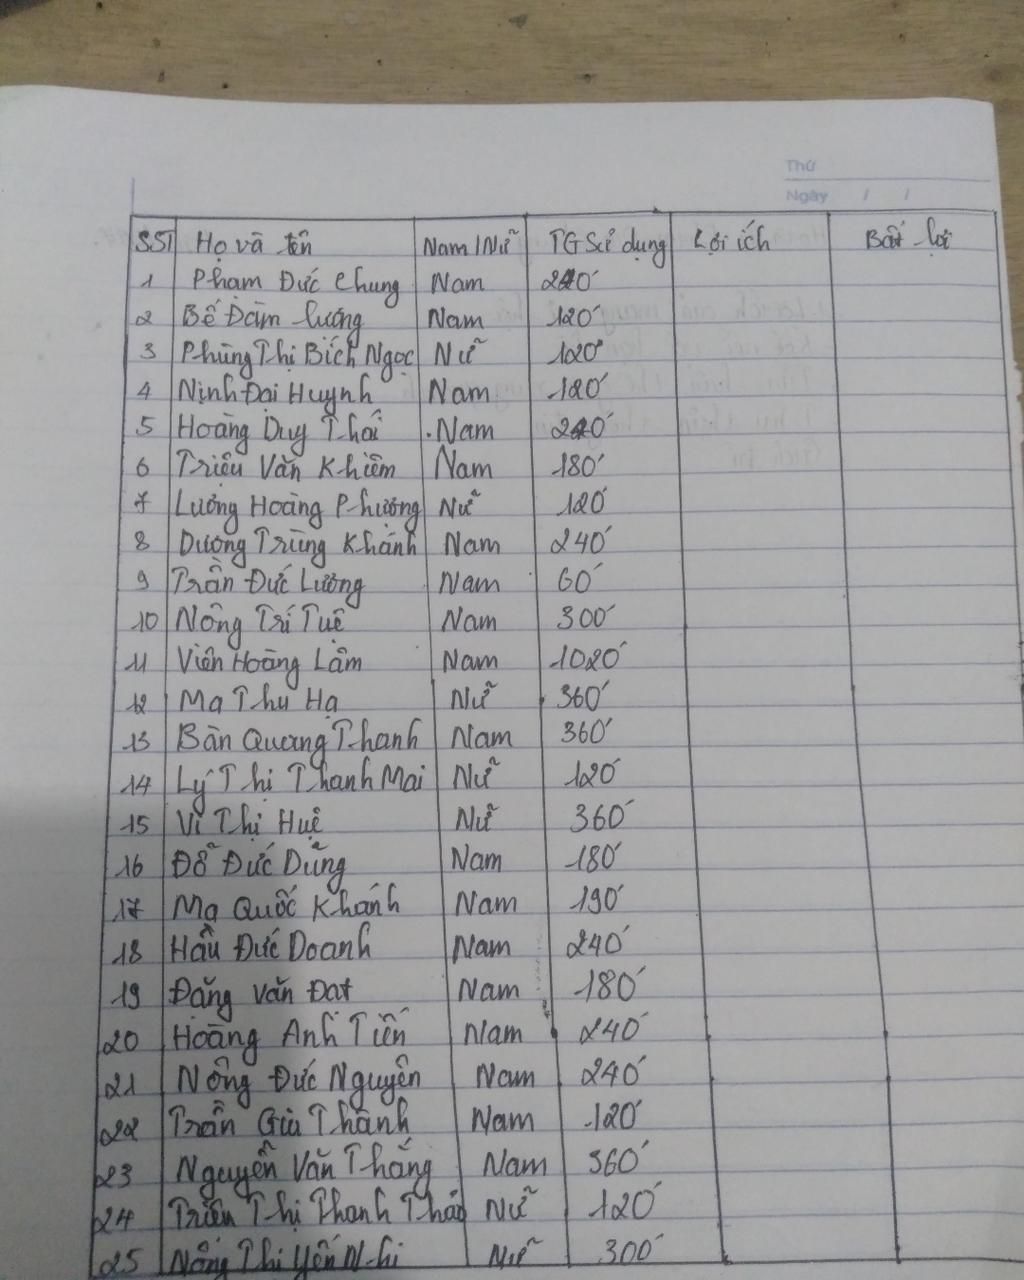 Thứ
Ngày / /
SST Họ và tên Nam/Nữ TG Sử dụng Lợi ích Bất lợi
1 Phạm Đức Chung Nam 240'
2 Bế Đàm Lương Nam 120'
3 Phùng Thị Bích Ngọc Nữ 120'
4 Ninh Đại Huynh Nam 120'
5 Hoàng Duy Thái Nam 240'
6 Triệu Văn Khiêm Nam 180'
7 Lương Hoàng Phương Nữ 120'
8 Dương Trùng Khánh Nam 240'
9 Trần Đức Lương Nam 60'
10 Nông Trí Tuệ Nam 300'
11 Viên Hoàng Lâm Nam 1020'
12 Ma Thu Hạ Nữ 360'
13 Bàn Quang Thanh Nam 360'
14 Lý Thị Thanh Mai Nữ 120'
15 Vi Thị Huệ Nữ 360'
16 Đỗ Đức Dũng Nam 180'
17 Ma Quốc Khánh Nam 190'
18 Hầu Đức Doanh Nam 240'
19 Đặng Văn Đạt Nam 180'
20 Hoàng Anh Tiến Nam 240'
21 Nông Đức Nguyên Nam 240'
22 Trần Gia Thành Nam 120'
23 Nguyễn Văn Thắng Nam 360'
24 Triệu Thị Thanh Thảo Nữ 120'
25 Nông Thị Yến Nhi Nữ 300'